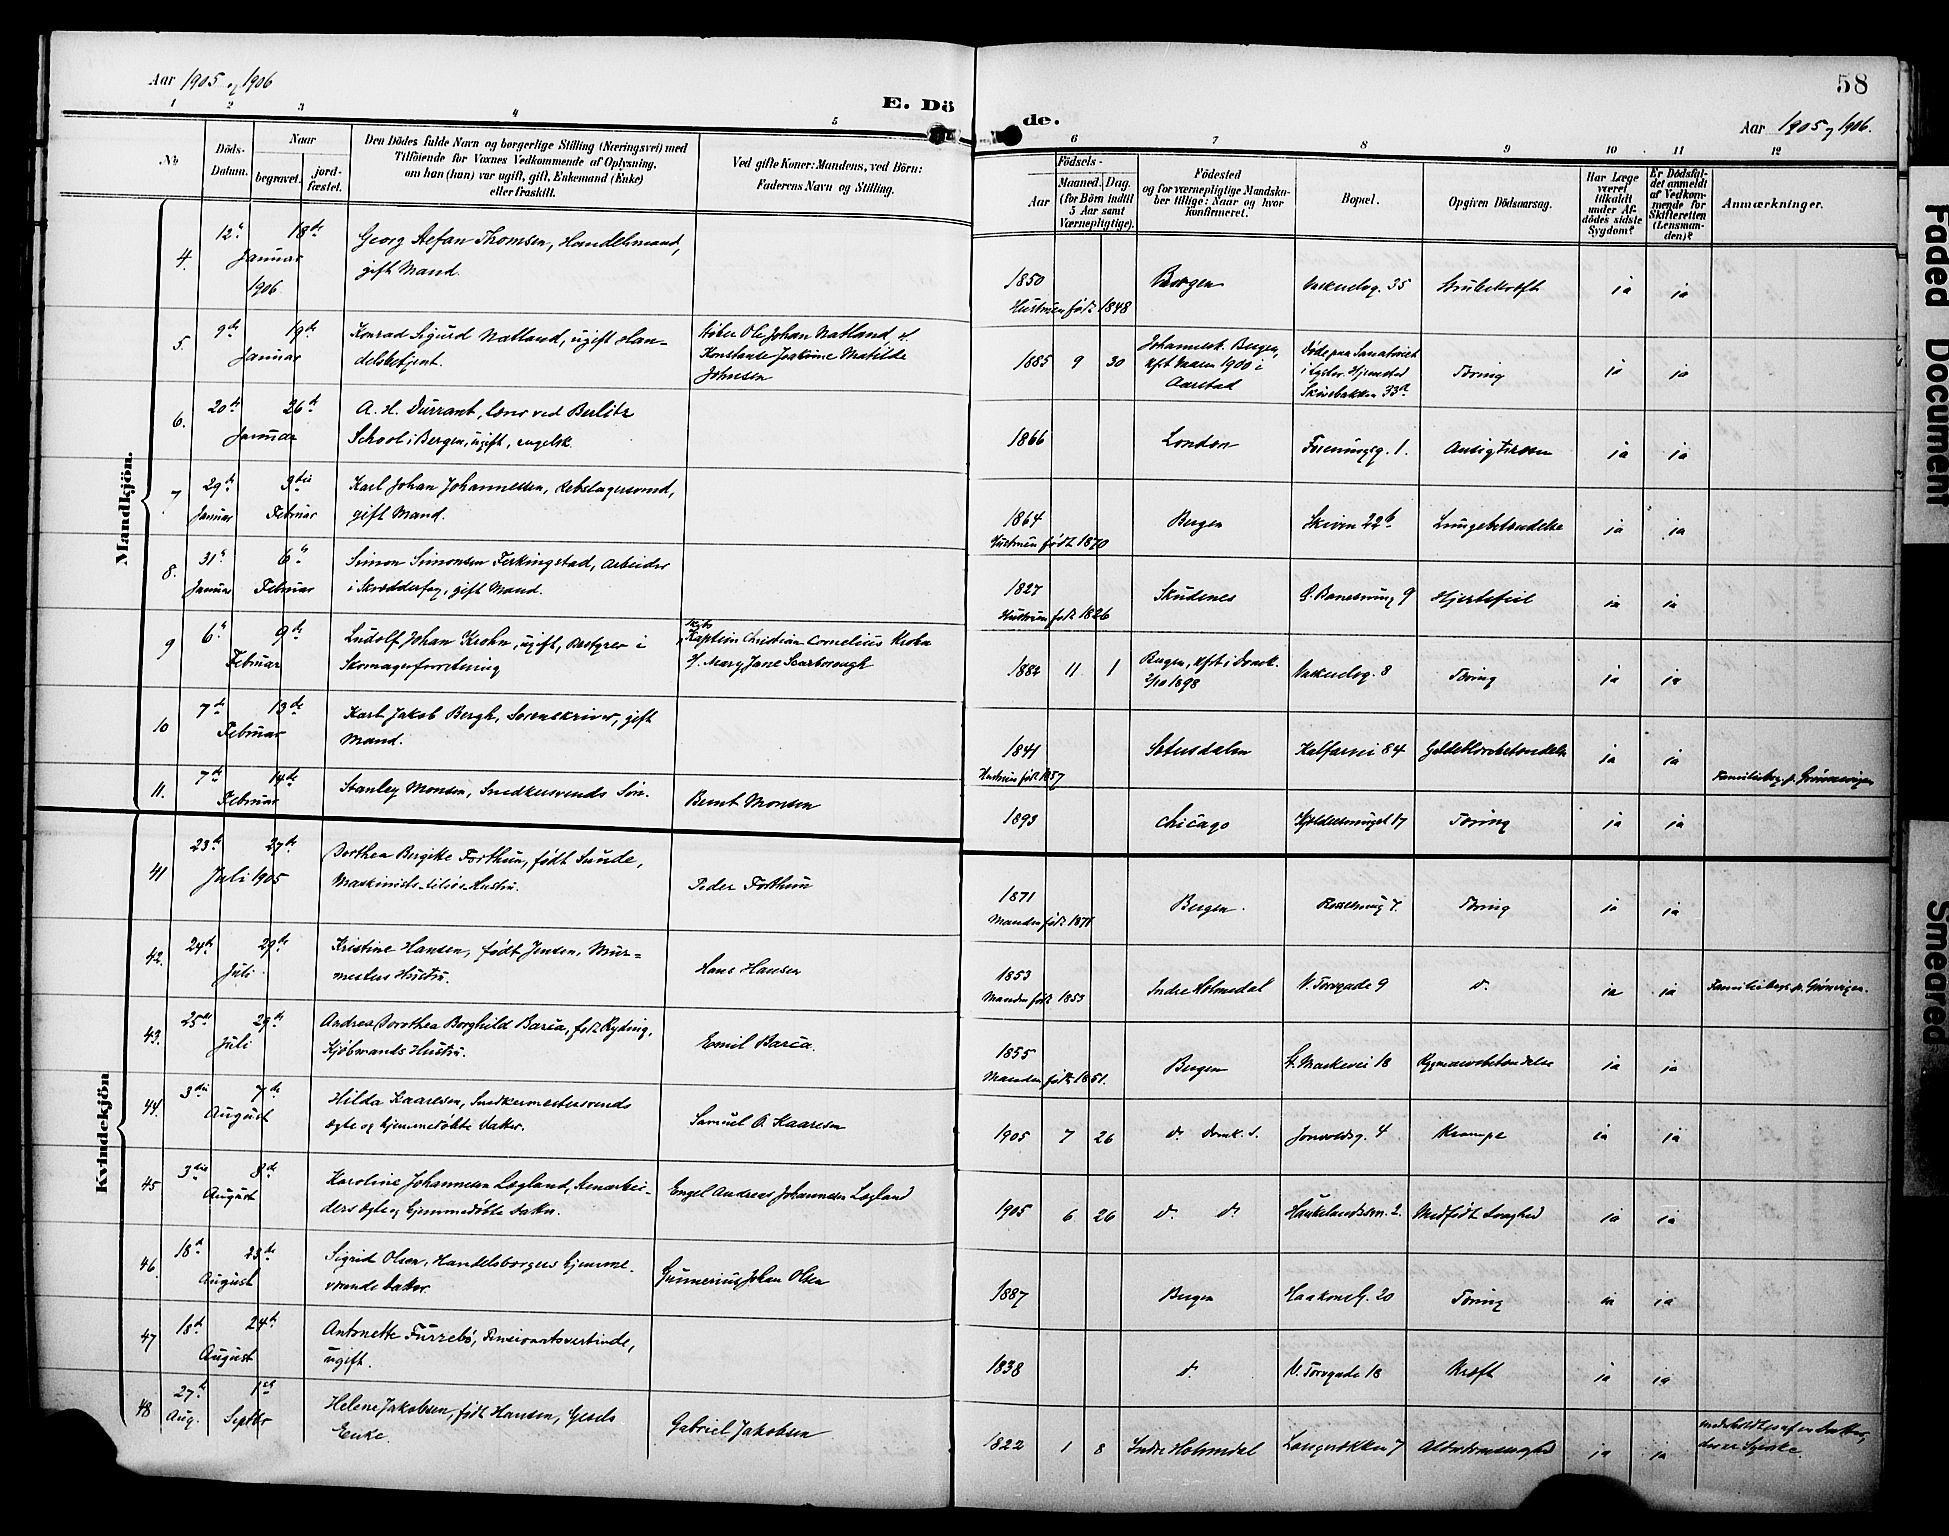 Aar 1905 og 1906
58
E. Dö
de.
Aar 1905 og 1906.
1 2 3 4 5
6 7 8 9 10 11 12
No
Döds-
Datum.
Naar
begravet.
jord-
fæstet.
Den Dödes fulde Navn og borgerlige Stilling (Næringsvei) med
Tilföiende for Voxnes Vedkommende af Oplysning,
om han (hun) var ugift, gift, Enkemand (Enke)
eller fraskilt.
Ved gifte Koner: Mandens, ved Börn:
Faderens Navn og Stilling.
Födsels-
Aar
Maaned. Dag.
(for Börn indtil
5 Aar samt
Værnepligtige).
Födested
og for værnepligtige Mandska-
ber tillige: Naar og hvor
konfirmeret.
Bopæl.
Opgiven Dödsaarsag.
Har Læge
været
tilkaldt
under Af-
dödes sidste
Sygdom?
Er Dödsfal-
det anmeldt
af Vedkom-
mende for
Skifteretten
(Lensman-
den)?
Anmærkninger.
Mandkjön.
4. 12te 18de Januar 1906
Georg Stefan Thomsen, Handelsmand,
gift Mand.
1850 Hustruen født 1848
Bergen
35
Strubekræft
ja ja
5. 9de 19de Januar
Konrad Sigurd Natland, ugift Han-
delsbetjent.
Støber Ole Johan Natland, &
Konstanse Joakime Matilde
Johnsen
1885 9 30
Johannesk. Bergen,
1900 i
Aarstad
Døde paa Sanatoriet
Hjemsted
Skivebakken 33a
Tæring
ja ja
6. 20de 26de Januar
A. H. Durrant, lærer ved Berlitz
School i Bergen, ugift, engelsk.
1866
London
Foreningsg. 1.
ja ja
7. 29de Januar 3die Februar
Karl Johan Johannessen, Rebslagersvend,
gift Mand.
1864 Hustruen født 1870
Bergen
Skiven 22b
Lungebetændelse
ja ja
8. 31te Januar 6te Februar
Simon Simonsen Ferkingstad, Arbeider
i Skrædderfag, gift Mand.
1827 Hustruen født 1826
Skudenes
9
Hjertefeil
ja ja
9 6te 9de Februar
Ludolf Johan Krohn, ugift, Bestyrer i
Skomagerforretning
Skibs
Kaptein Christian Cornelius Krohn
& Mary Jane Scarborough
1882 11 1
Bergen, kfrt i Domk.
2/10 1898
8
Tæring
ja ja
10 7de 13de Februar
Karl Jakob Bergh, Sorenskriver, gift
Mand.
1841 Hustruen født 1857
Setesdalen
Kalfarvei 84
Galdeblærebetændelse
ja ja
Familiebeg. p.
11. 7de 14de Februar
Stanley Monsen, Snedkersvends Søn.
Bernt Monsen
1893
Chicago
17
Tæring
ja ja
Kvindekjön
41 23de 27de Juli 1905
Dorthea Bergitte Forthun, født Sunde,
Maskinists Hustru.
Peder Forthun
1871 Manden født 1871
Bergen.
7.
Tæring
ja ja
42. 24de 29de Juli
Kristine Hansen, født Jensen, Mur-
mesters Hustru.
Hans Hansen
1853 Manden født 1853
Indre Holmedal
N. Torvgade 9
do
ja ja
Familiebeg. p.
43. 25de 29de Juli
Andrea Dorothea Borghild Barca, født Ryding,
Kjøbmands Hustru.
Emil Barca.
1855 Manden født 1851.
Bergen
St. Markevei 18
Rygmarvsbetændelse
ja ja
44. 3die 7de August
Hilda Kaaresen, Snedkermestersvends
ægte og hjemmedøbte Datter.
Samuel O. Kaaresen
1905 7 26
do Domk. S.
4
Krampe
ja ja
45 3die 8de August
Karoline Johannesen Lægland, Stenarbei-
ders ægte og hjemmedøbte Datter.
Engel Andreas Johannesen Lægland
1905 6 26
do do
Haukelandsvn. 2.
Medfødt Svaghed
ja ja
46. 18de 23de August
Sigrid Olsen, Handelsborgers hjemme-
værende Datter.
Gunnerius Johan Olsen
1887
Bergen
Haakonsg. 20
Tæring
ja ja
47 18de 24de August
Antonette Furrebø, Pensionatsvertinde,
ugift.
1838
do
N. Torvgade 18
Kræft
ja ja
48 27de Aug. 1ste Septbr
Helene Jakobsen, født Hansen, Gesels
Enke.
Gabriel Jakobsen
1822 1 8
Indre Holmedal
7
Alderdomssvaghed
ja ja
Faded Document
Smeared